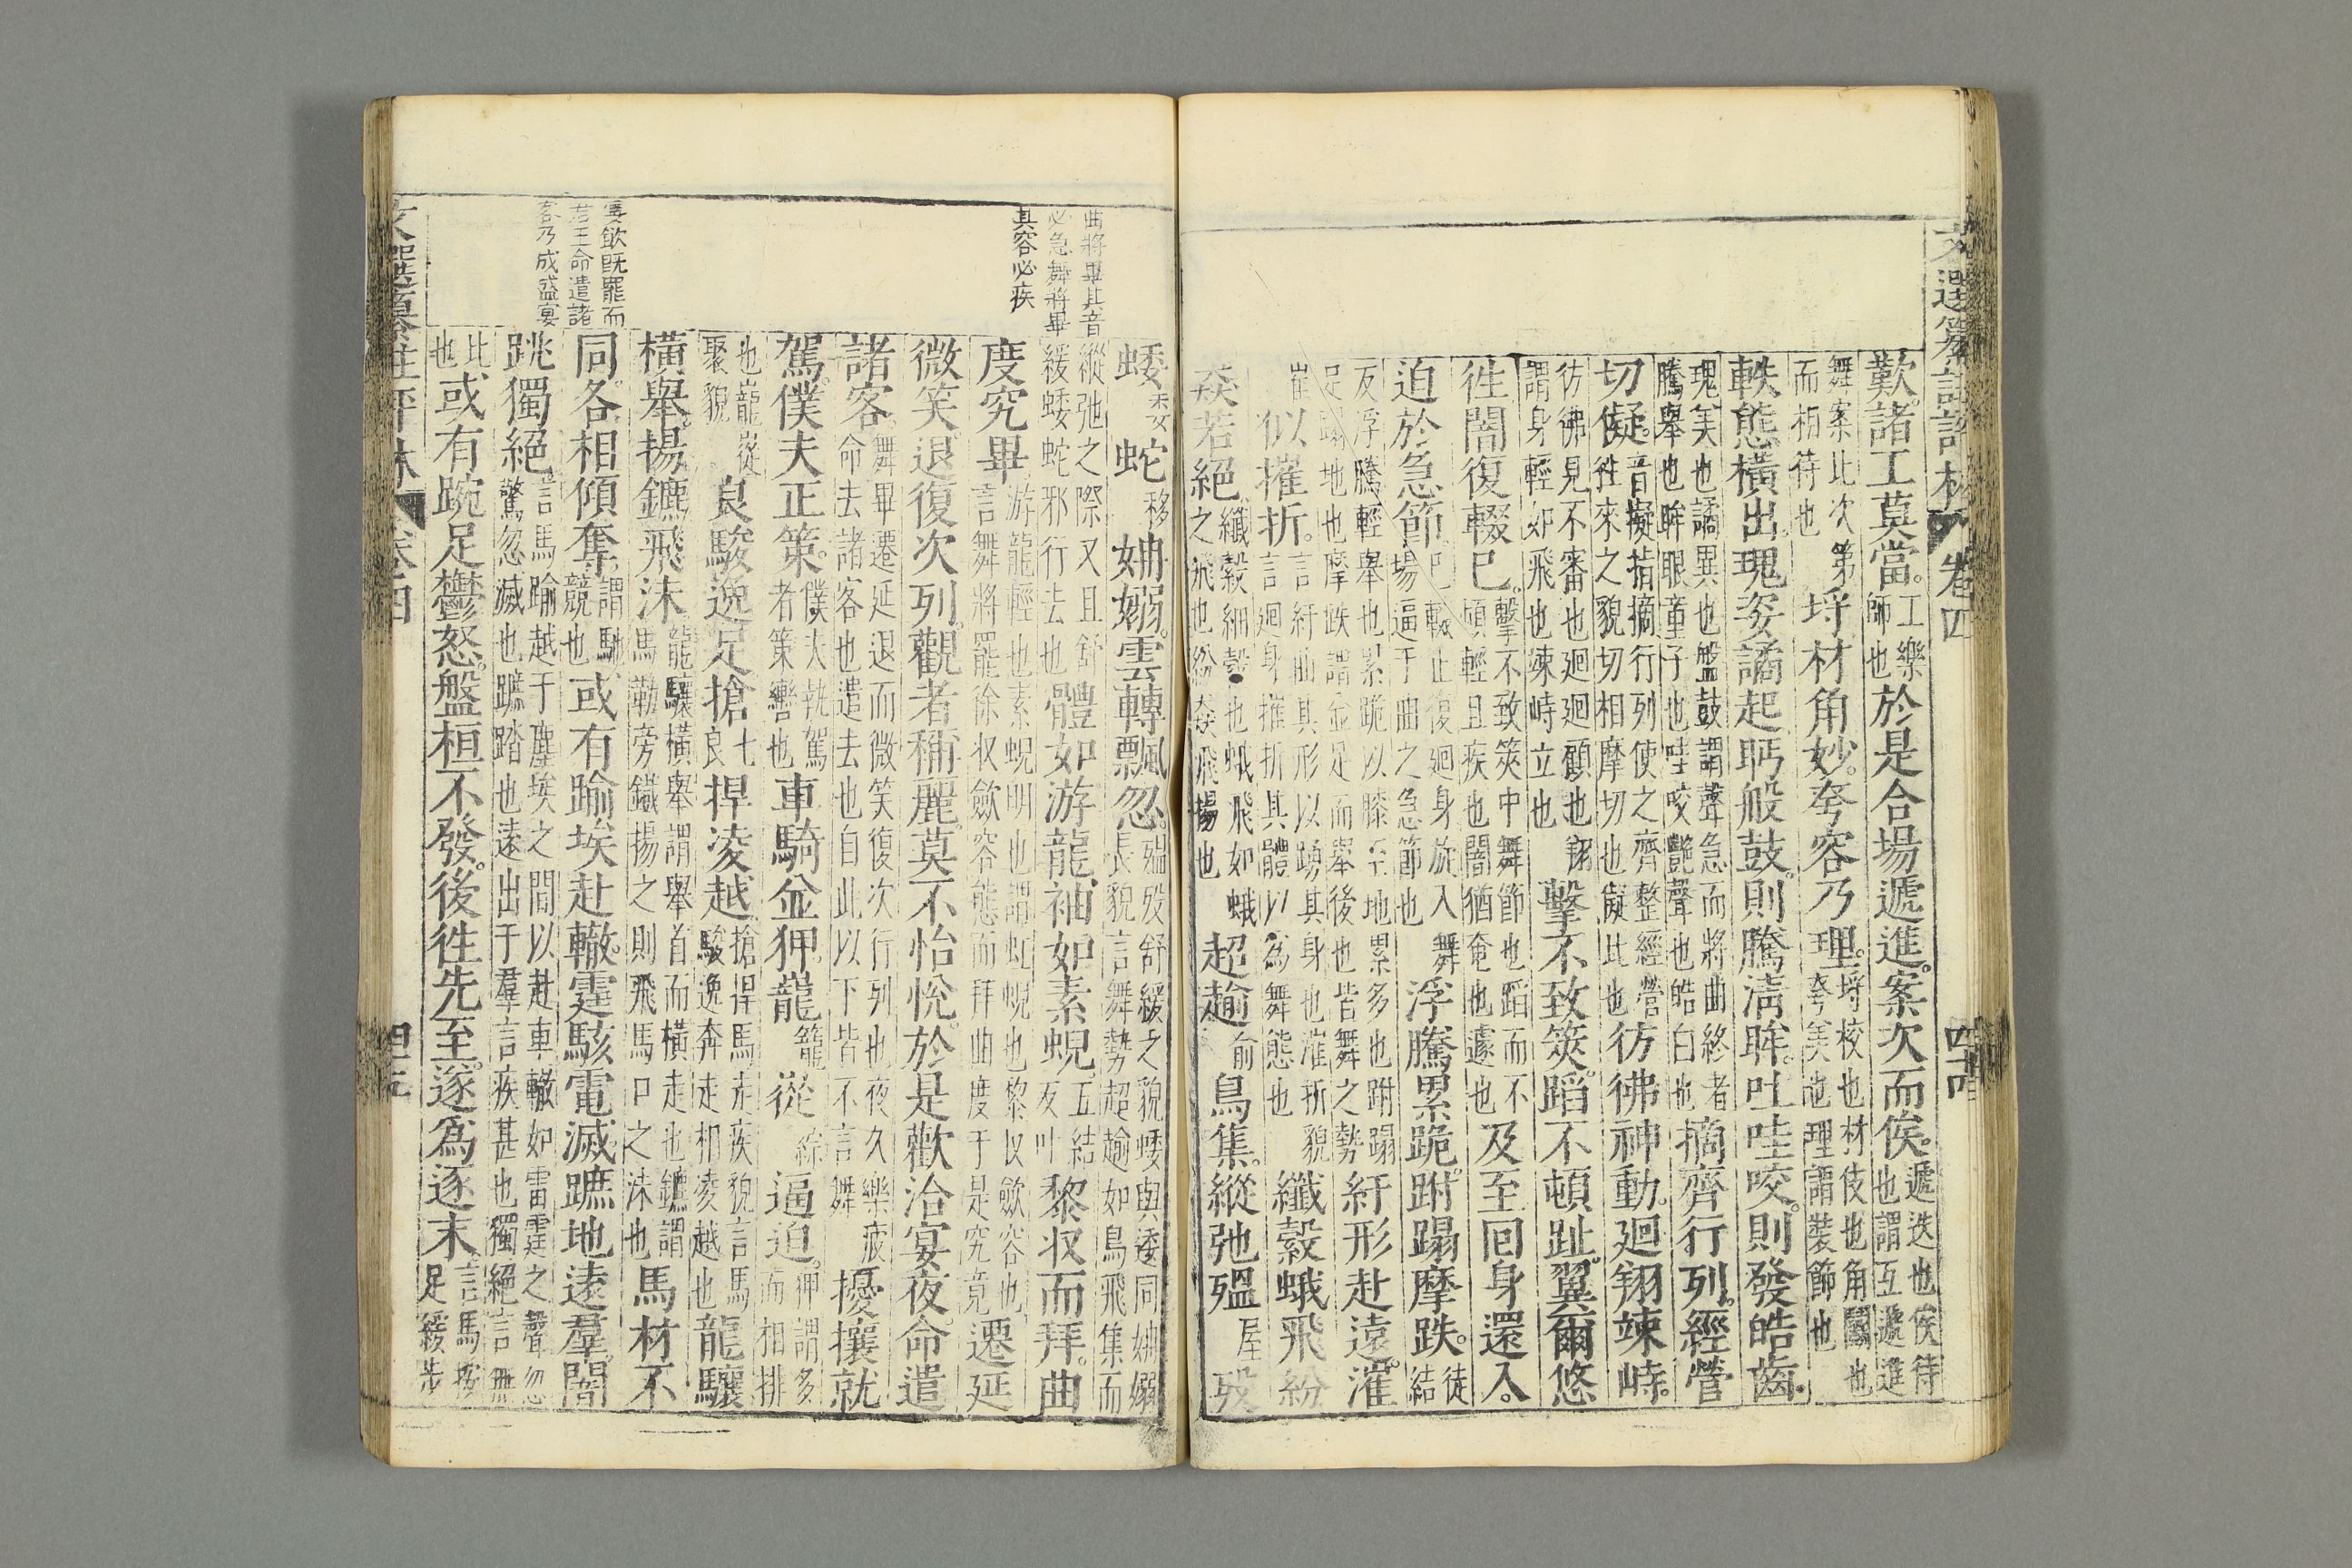 文選纂註評林 卷四 四十四
歎諸工莫當工樂師也於是合場遞進案次而俟遞迭也俟待也謂互遞進
舞案此次第而相待也埒材角妙夸容乃理埒校也材伎也角鬭也夸美也理謂裝飾也
軼態橫出瑰姿譎起眄般鼓則騰清眸吐哇咬則發皓齒
瑰美也譎異也盤鼓謂聲急而將曲終者騰舉也眸眼童子也哇咬艷聲也皓白也摘齊行列經營
切儗音擬指摘行列使之齊整經營徃來之貌切相摩切也儗比也彷彿神動廻翔竦峙
彷彿見不審也廻廻顧也翔謂身輕如飛也竦峙立也擊不致筴蹈不頓趾翼爾悠
徃闇復輟已擊不致筴中舞節也蹈而不頓輕且疾也闇猶奄也遽也及至回身還入
迫於急節已輟止復廻身旋入舞場逼于曲之急節也浮騰累跪跗蹋摩跌徒結
反浮騰輕舉也累跪以膝至地累多也跗蹋足蹋地也摩跌謂並足而舉後也皆舞之勢紆形赴遠漼
崔似摧折言紆曲其形以踴其身也漼折貌言廻身摧折其體以為舞態也纖縠蛾飛紛
猋若絕纖縠細縠也蛾飛如蛾之飛也紛猋飛揚也超趫俞鳥集縱弛殟屋歿
蜲未女蛇移姌嫋雲轉飄忽殟歿舒緩之貌蜲與逶同姌嫋長貌言舞勢超趫如鳥飛集而
縱弛之際又且舒緩蜲蛇邪行去也體如游龍袖如素蜺五結反叶黎收而拜曲
度究畢游龍輕也素蜺明也謂虹蜺也黎收歛容也言舞將罷徐收歛容態而拜曲度于是究竟遷延
微笑退復次列觀者稱麗莫不怡悅於是歡洽宴夜命遣
諸客舞畢遷延退而微笑復次行列也夜久樂疲命去諸客也遣去也自此以下皆不言舞擾攘就
駕僕夫正策僕夫執駕者策轡也車騎並狎龍籠從綜逼迫狎謂多而相排
也巃嵸聚貌良駿逸足搶七良捍凌越搶捍馬走疾貌言馬駿逸奔走相凌越也龍驤
橫舉揚鑣飛沬龍驤橫舉謂舉首而橫走也鑣謂馬勒旁鐵揚之則飛馬口之沬也馬材不
同各相傾奪謂馳競也或有踰埃赴轍霆駭電滅蹠地遠羣闇
跳獨絕言馬踰越于塵埃之間以赴車轍如雷霆之聲忽驚忽滅也蹠踏也遠出于羣言疾甚也獨絕言無
比也或有踠足鬱怒盤桓不發後徃先至遂為逐末言馬按足緩步
曲將畢其音
必急舞將畢
其容必疾
宴飲既罷而
若王命遣諸
客乃成盛宴